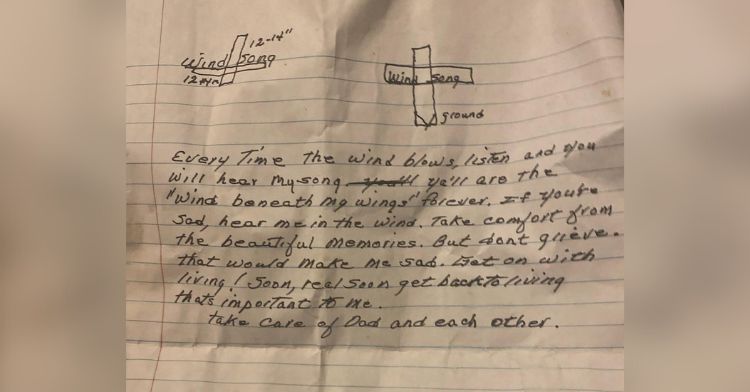 12-14"
Wind Song
Wind Song
ground
Every Time the wind blows, listen and you
will hear my song ya'll are the
"Wind beneath my wings" forever. If you're
Sad, hear me in the wind. Take comfort from
the beautiful memories. But dont grieve.
that would make me sad. Get on with
living! Soon, real soon get back to living
thats important to me.
take care of Dad and each other.